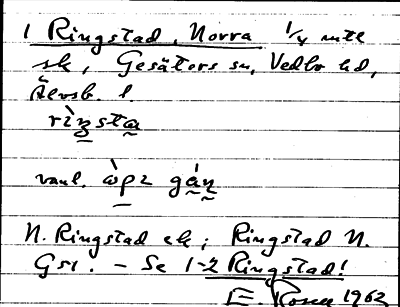 1 Ringstad, Norra 1/4 mtl
sk, Gesäters sn, Vedbo hd,
Älvsb. l.
rìŋsta
vanl. òpɪ gáɳ
N. Ringstad ek; Ringstad N.
Gst. – Se 1-2 Ringstad!
E. Rosell 1962